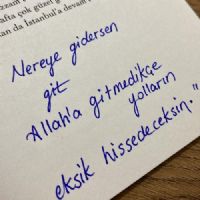 afta çok güzel g
an da İstanbul'a devam
Nereye gidersen
git
Allah'a gitmedikçe
yolların
eksik hissedeceksin."